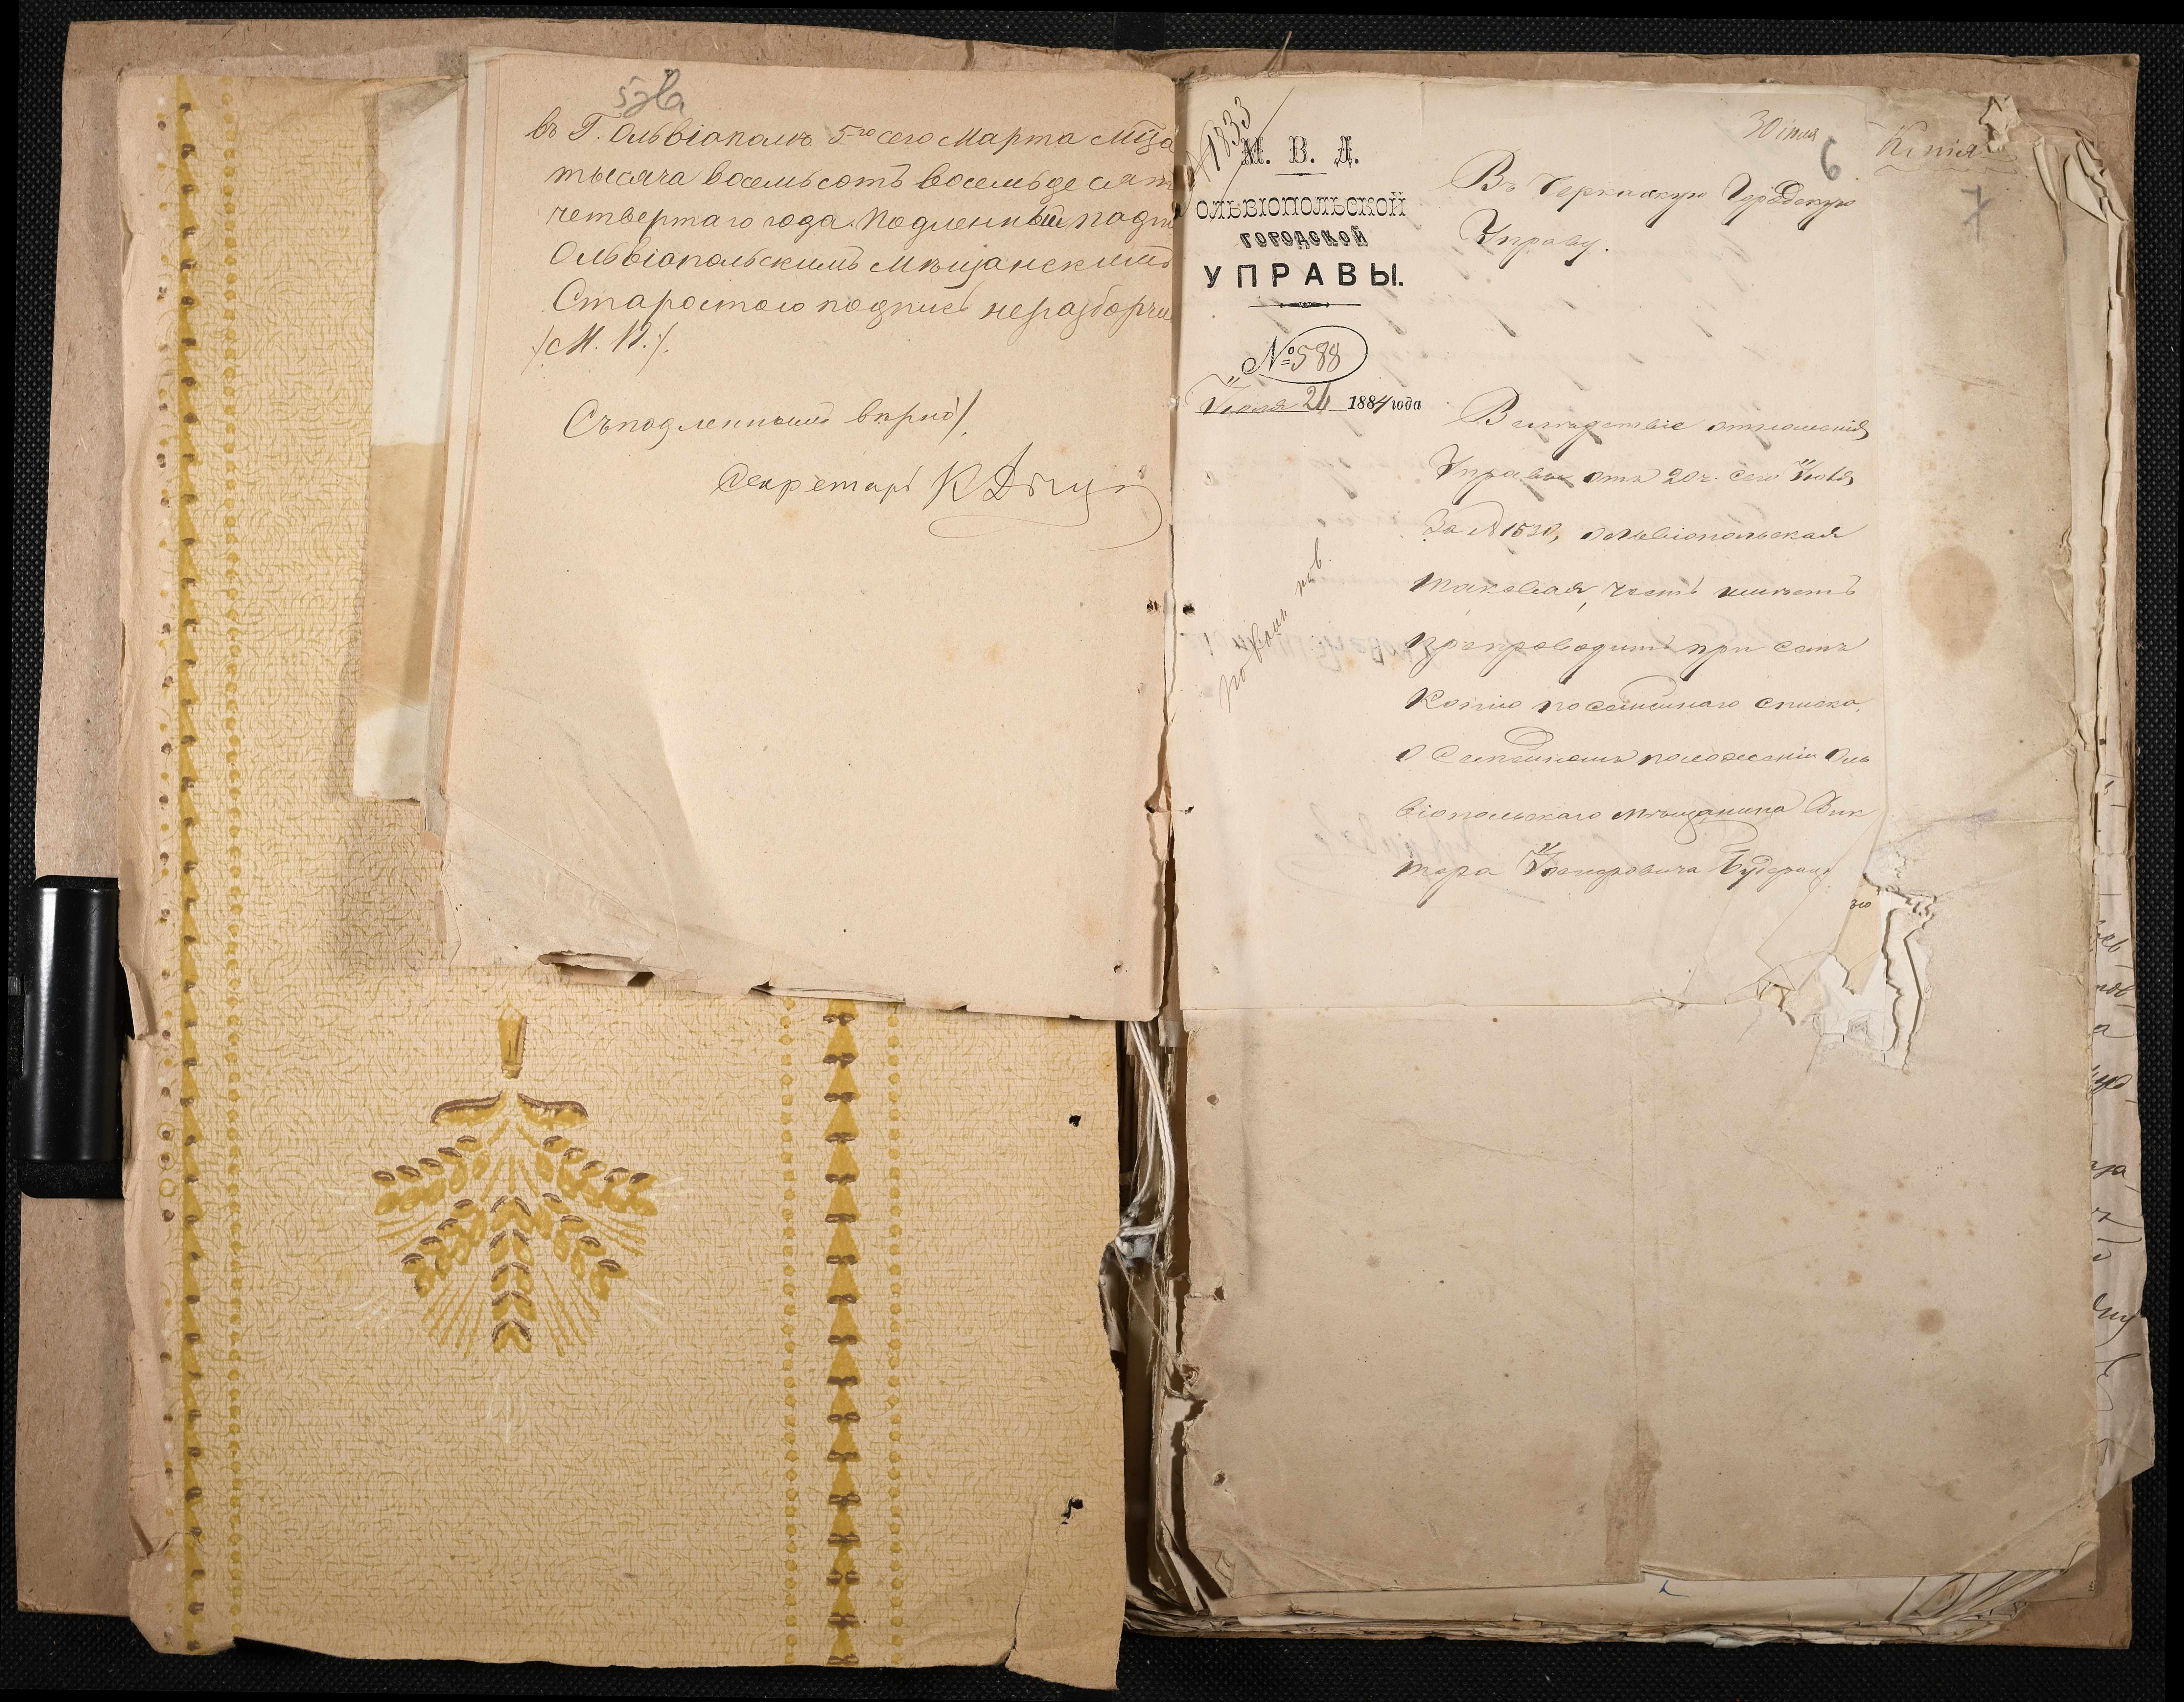 въ Г. Ольвіополѣ 5го сего Марта Мца
тысяча восемьсотъ восемьдесят
четвертаго года. Подленный подпи
Ольвіопольскимъ Мѣщанскимъ
Старостою подпись неразборчи
/М. П./.
Съ подленнымъ вѣрно/.
Секретарь К
1833
М. В. Д.
ОЛЬВІОПОЛЬСКОЙ
ГОРОДСКОЙ
УПРАВЫ.
№ 588
Іюля 26 1884 года
30 іюля
6
Копія
7
Въ Черкаскую Городскую
Управу.
Вслѣдствіе отношенія
Управы отъ 20 ч. сего Іюля
За № 1530, Ольвіопольская
таковая, честь имѣетъ
препроводить при семъ
Копію посемейнаго списка
о Семейномъ положеніи Оль
віопольскаго мѣщанина Вик
тора